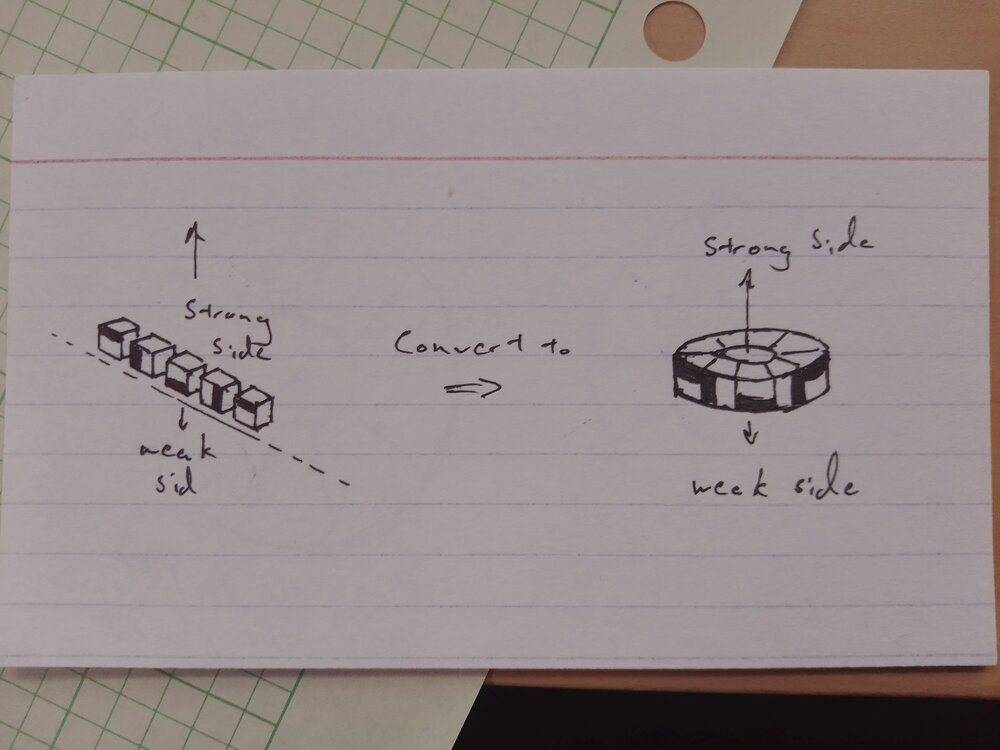 Strong
side
weak
sid
Convert to
Strong Side
weak side